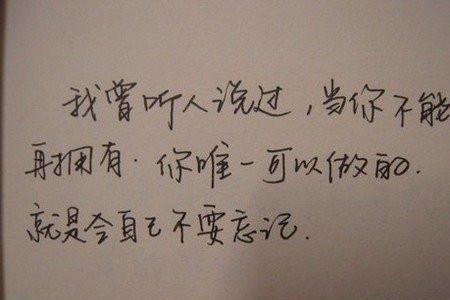 我曾听人说过，当你不能
再拥有.你唯一可以做的.
就是令自己不要忘记.